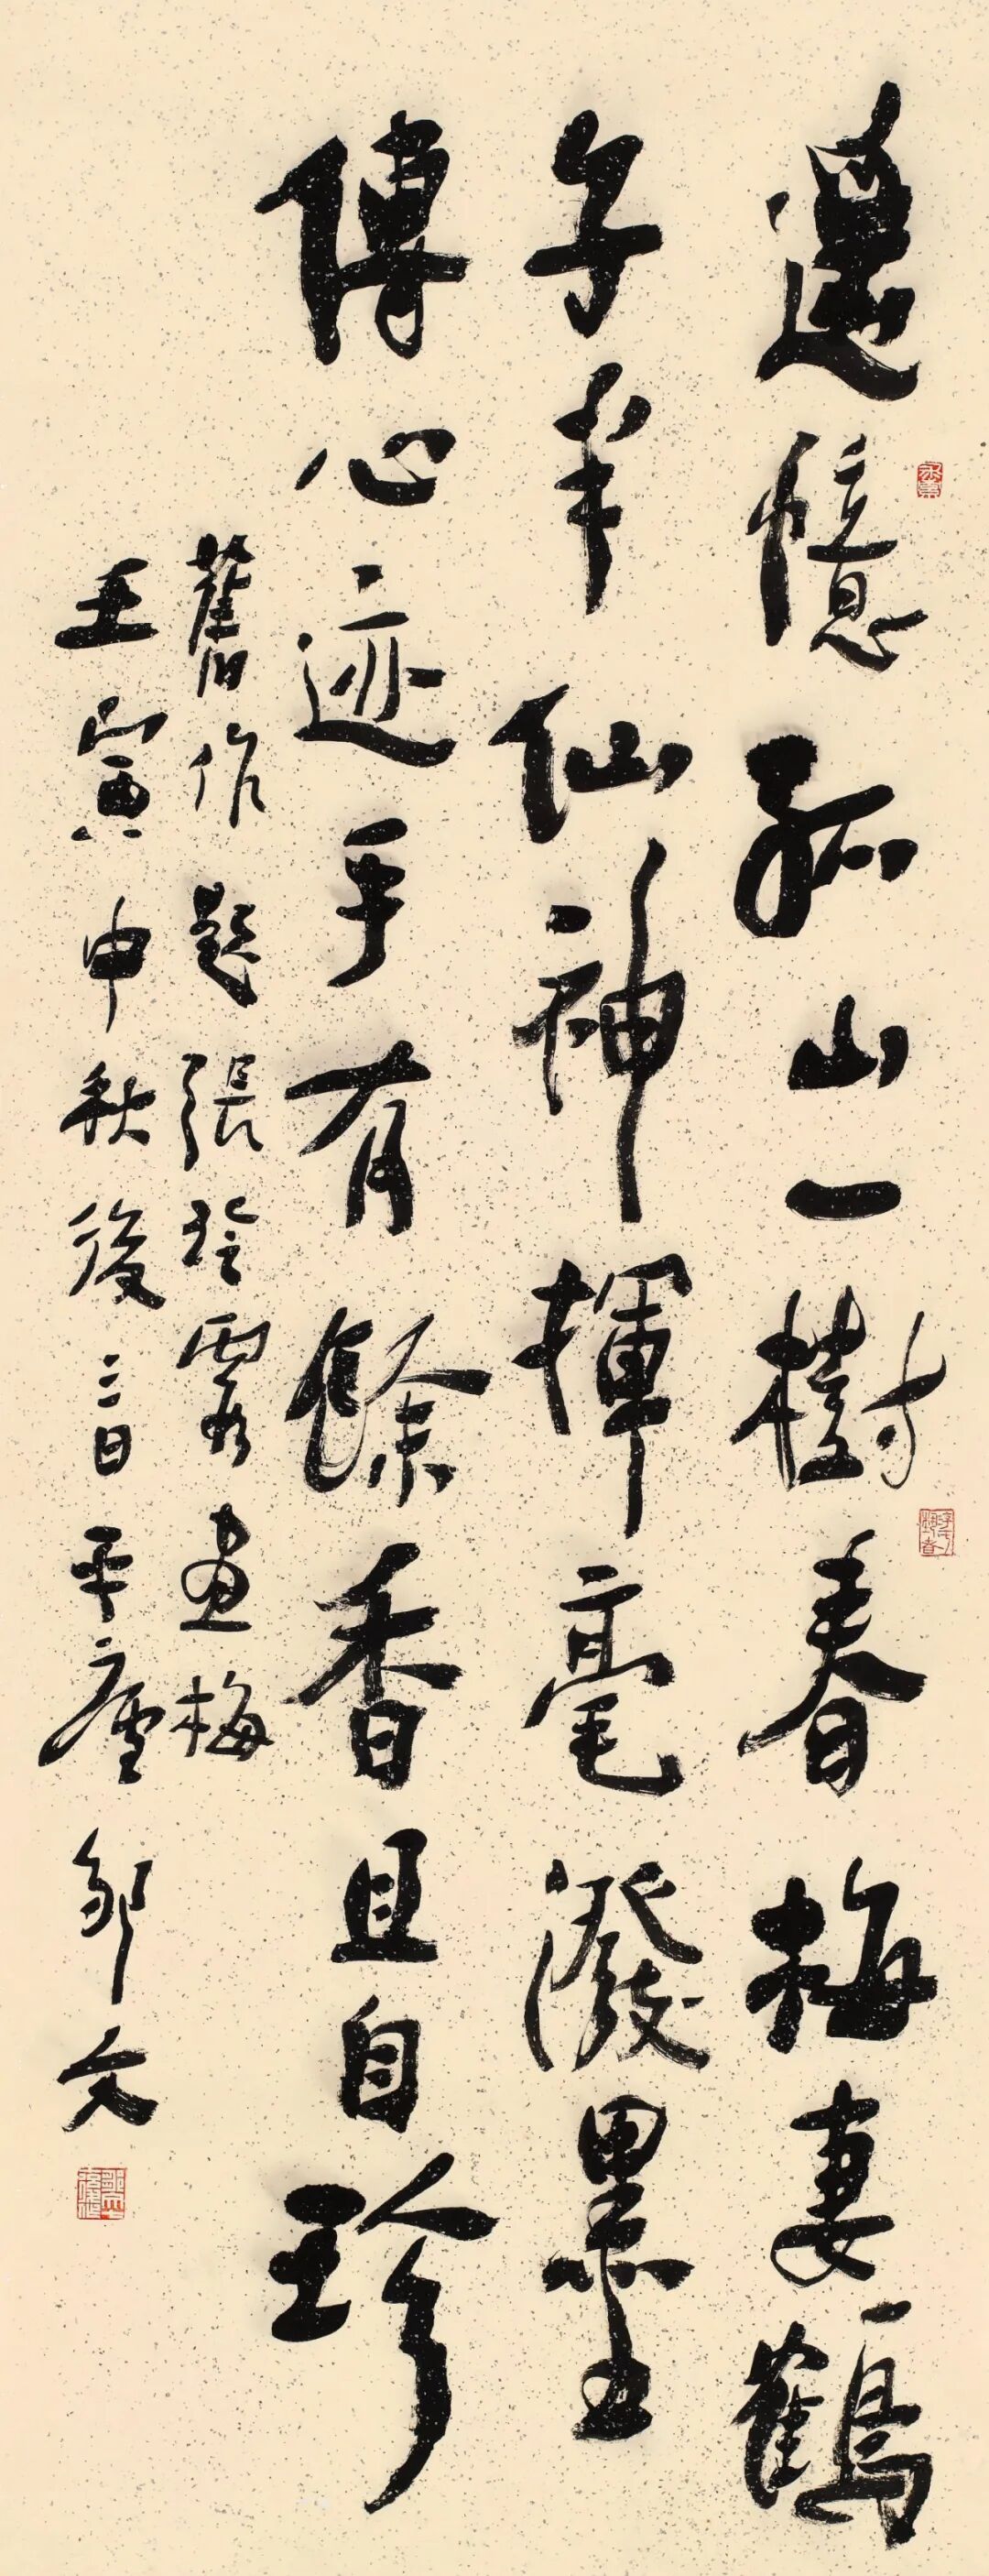 憶孤山一樹春梅妻鶴
子半仙神揮毫潑墨
傳心迹手有餘香且自珍
舊作題張露畫梅
壬寅中秋後三日平廬鄒文